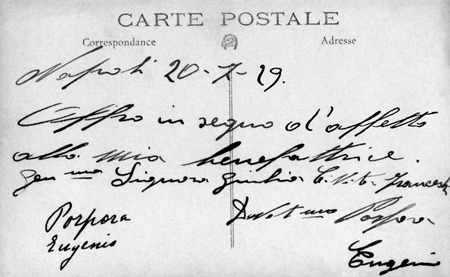 CARTE POSTALE
Correspondance Adresse
Napoli 20-7-29.
Offro in segno d'affetto
alla mia benefattrice.
Gen ma Signora Giulia
Porpora
Eugenio
Porpora
Eugenio